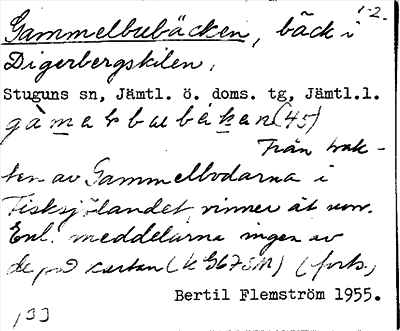 1-2.
Gammelbubäcken, bäck i
Digerbergskilen,
Stuguns sn, Jämtl. ö. doms. tg, Jämtl.l.
(45)
Från trak-
ten av Gammelbodarna i
Fisksjölandet, rinner åt nnv.
Enl. meddelarna ingen av
de på kartan (k (forts.)
Bertil Flemström 1955.